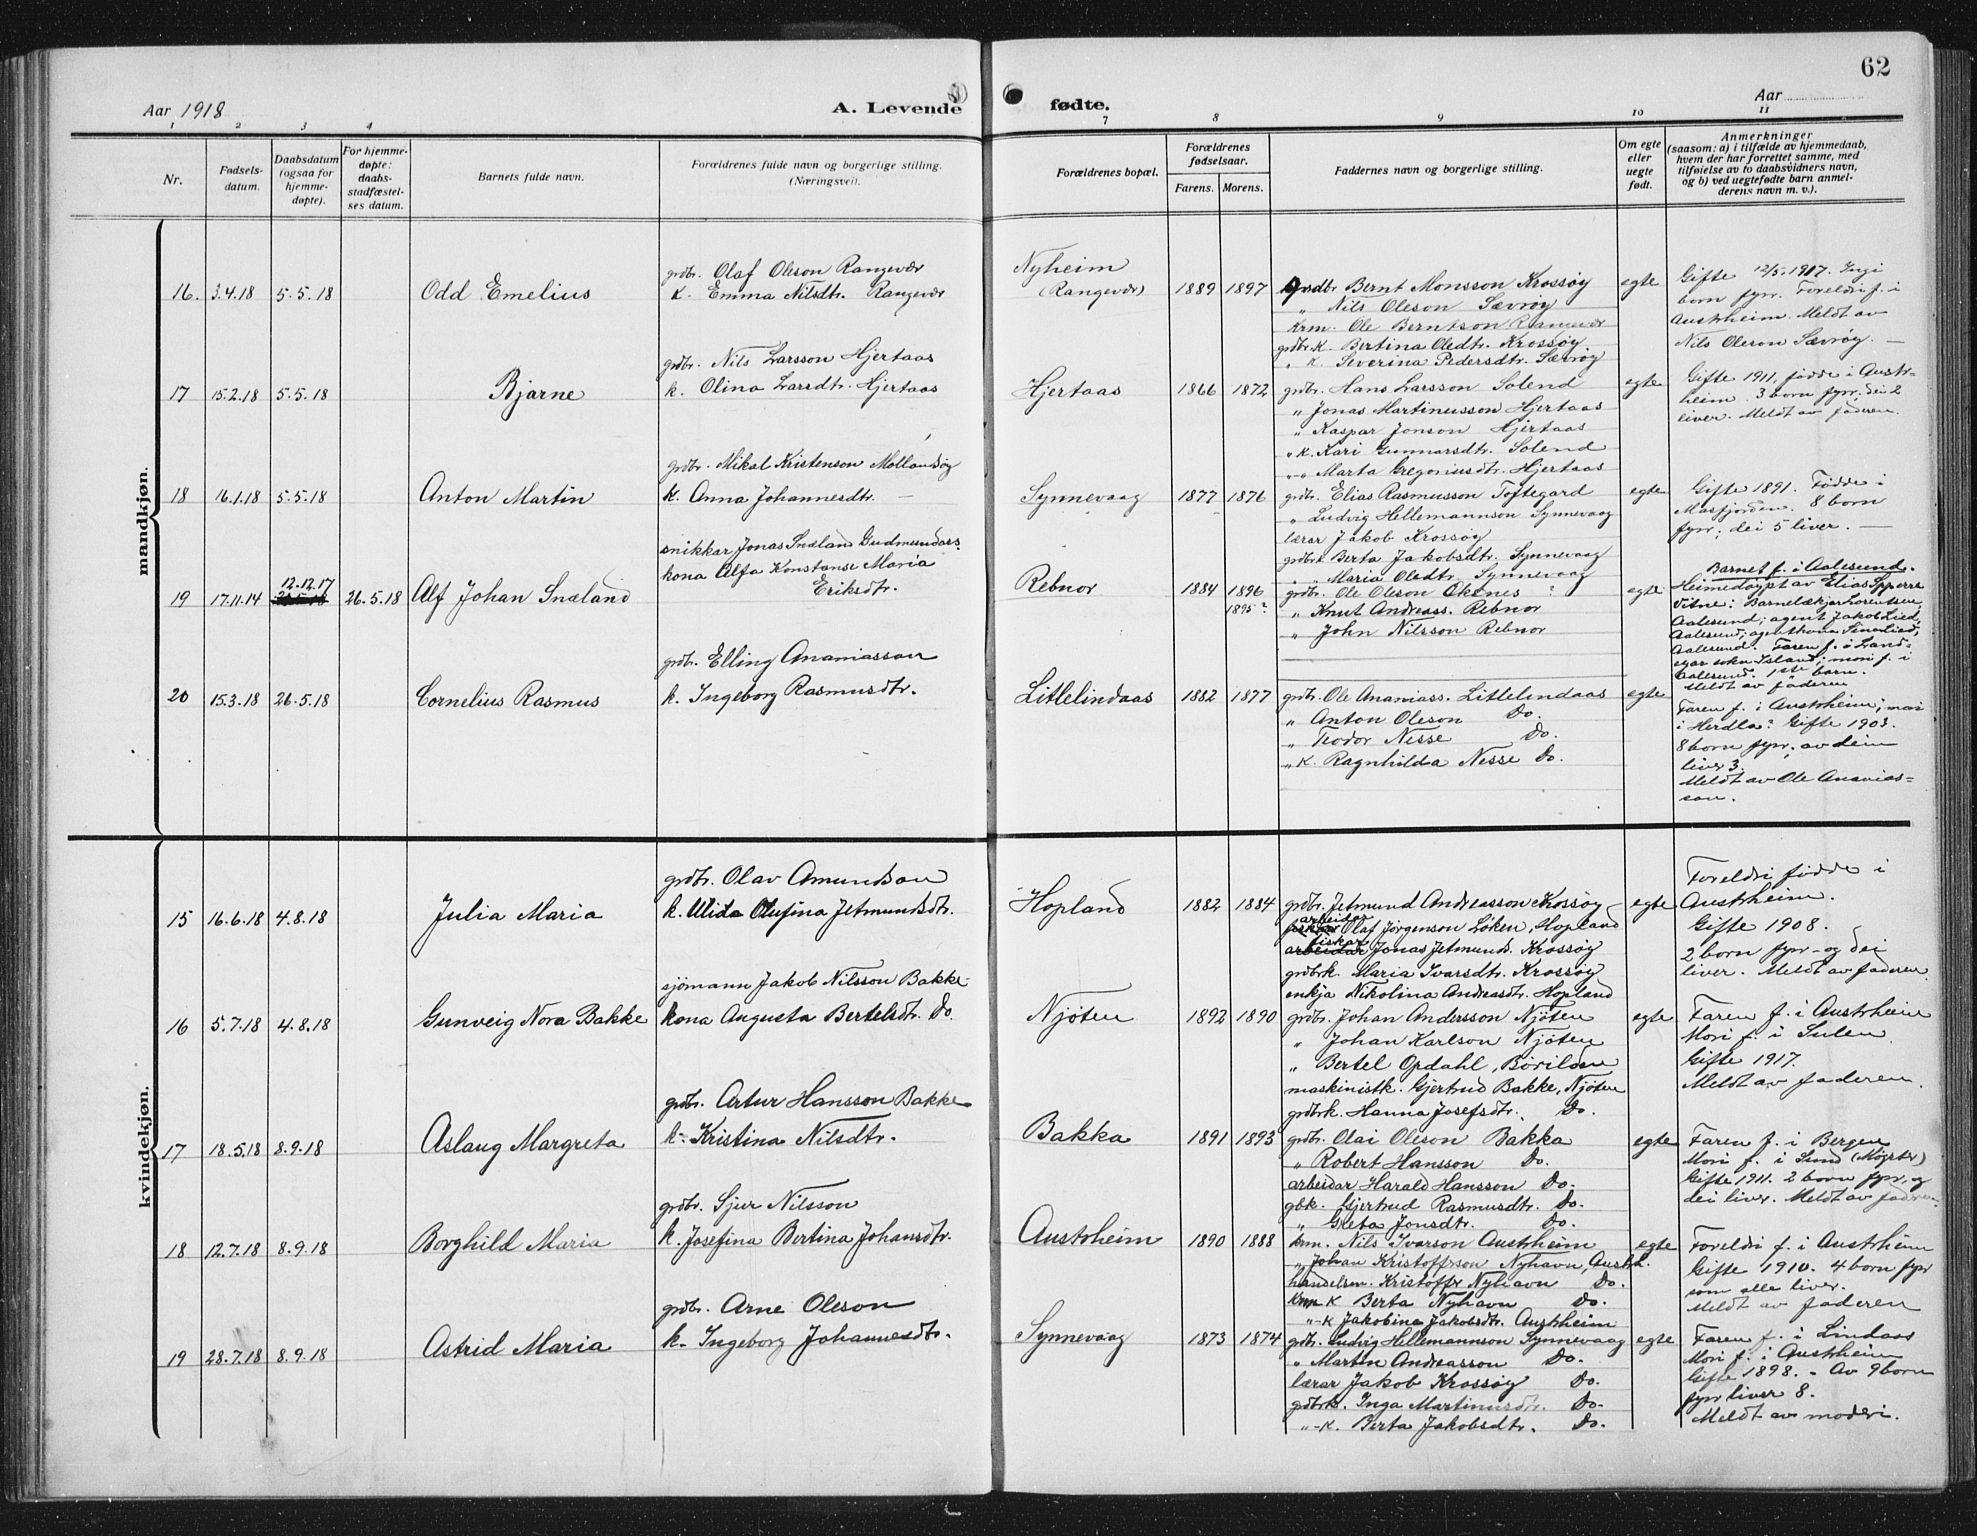 62
Aar 1918
A. Levende fødte.
Aar
1 2 3 4 7 8 9 10 11
Nr.
Fødsels-
datum.
Daabsdatum
(ogsaa for
hjemme-
døpte).
For hjemme-
døpte:
daabs-
stadfæstel-
ses datum.
Barnets fulde navn.
Forældrenes fulde navn og borgerlige stilling.
(Næringsvei).
Forældrenes bopæl.
Forældrenes
fødselsaar.
Farens. Morens.
Faddernes navn og borgerlige stilling.
Om egte
eller
uegte
født.
Anmerkninger
(saasom: a) i tilfælde av hjemmedaab,
hvem der har forrettet samme, med
tilføielse av to daabsvidners navn,
og b) ved uegtefødte barn anmel-
derens navn m. v.).
mandkjøn.
16. 3.4.18 5.5.18 Odd Emelius
grdbr. Olaf Oleson Rangevær
k. Emma Nilsdtr. Rangevær
Nyheim
(Rangevær)
1889 1897
Grdbr Bernt Monsson Krossøy
" Nils Oleson Sævrøy
Krm. Ole Berntson Rangevær
grdbr.k. Bertina Oledtr. Krossøy
" k. Severina Pedersdtr. Sævrøy
egte
Gifte 12/5 1917. Ingi
born fyrr. Foreldri f. i
Austrheim. Meldt av
Nils Oleson Sævrøy. —
17 15.2.18 5.5.18 Bjarne
grdbr. Nils Larsson Hjertaas
k. Olina Larsdtr. Hjertaas
Hjertaas
1866 1872
grdbr. Hans Larsson Solend
" Jonas Martinusson Hjertaas
" Kaspar Jonson Hjertaas
" k. Kari Gunnarsdtr. Solend
" " Marta Gregoriusdtr. Hjertaas
egte
Gifte 1911, fødde i Austr-
heim. 3 born fyrr. dei 2
liver. Meldt av faderen.
18 16.1.18 5.5.18 Anton Martin
grdbr. Mikal Kristenson Mollandsøy
k. Anna Johannesdtr. —
Synnevaag
1877 1876
grdbr. Elias Rasmusson Toftegard
" Ludvig Hellemannson Synnevaag
lærar Jakob Krossøy
grdbr. Berta Jakobsdtr. Synnevaag
" " Maria Oledtr. Synnevaag
egte
Gifte 1891. Fødde i
Masfjorden. 8 born
fyrr; dei 5 liver. —
19 17.11.14 12.12.17 26.5.18 Alf Johan Snæland
snikkar Jonas Snæland Gudmundars.
kona Alfa Konstanse Maria
Eriksdtr.
Rebnor
1884 1896
1895?
grdbr. Ole Oleson Okenes
" Knut Andreass. Rebnor
" John Nilsson Rebnor
egte
Barnet f. i Aalesund.
Heimedøypt av Elias Sperre
Vitne: Barnelækjar Lorentsen,
Aalesund; agent Jakob Lied,
Aalesund; agentkona Sina Lied,
Aalesund. Faren f. i Land-
eyar sokn Island; mori f. i
Aalesund. 1ste barn.
Meldt av faderen
20 15.3.18 26.5.18 Cornelius Rasmus
grdbr. Elling Ananiasson
k. Ingeborg Rasmusdtr.
Litlelindaas
1882 1877
grdbr. Ole Ananiass. Litlelindaas
" Anton Oleson Do.
" Teodor Nesse Do.
" k. Ragnhilda Nesse Do.
egte
Faren f. i Austrheim; mori
i Herdla? Gifte 1903.
8 born fyrr; av deim
liver 3.
Meldt av Ole Ananias-
son.
kvindekjøn.
15 16.6.18 4.8.18 Julia Maria
grdbr. Olav Amundson
k. Alida Olufina Jetmundsdtr.
Hopland
1882 1884
grdbr. Jetmund Andreasson Krossøy
arbeidar
fiskar Olaf Jørgenson Løken, Hopland
fiskar
arbeidar Jonas Jetmunds. Krossøy
grdbrk. Maria Ivarsdtr. Krossøy
enkja Nikolina Andreasdtr. Hopland
egte
Foreldri fødde i
Austrheim.
Gifte 1908.
2 born fyrr - og dei
liver. Meldt av faderen
16 5.7.18 4.8.18 Gunveig Nora Bakke
sjømann Jakob Nilsson Bakke
kona Augusta Bertelsdtr. Do.
Njøten
1892 1890
grdbr. Johan Andersson Njøten
" Johan Karlson Njøten
" Bertel Opdahl, Børilden
maskinistk. Gjertrud Bakke, Njøten
grdbrk. Hanna Josefsdtr. Do.
egte
Faren f. i Austrheim
Mori f. i Sulen.
Gifte 1917.
Meldt av faderen.
17 18.5.18 8.9.18 Aslaug Margreta
grdbr. Artur Hansson Bakke
k. Kristina Nilsdtr.
Bakka
1891 1893
grdbr. Olai Oleson Bakka
" Robert Hansson Do.
arbeidar Harald Hansson Do.
gbk. Gjertrud Rasmusdtr. Do.
" Greta Jonsdtr. Do.
egte
Faren f. i Bergen
Mori f. i Sund (Møgster)
Gifte 1911. 2 born fyrr, og
dei liver. Meldt av faderen
18 12.7.18 8.9.18 Borghild Maria
grdbr. Sjur Nilsson
k. Josefina Bertina Johansdtr.
Austrheim
1890 1888
krm. Nils Ivarson Austrheim
" Johan Kristoffrson Nyhavn, Austrh.
handelsm. Kristoffr Nyhavn Do.
krm k Berta Nyhavn Do.
" -k Jakobine Jakobsdtr. Austrheim
egte
Foreldri f. i Austrheim
Gifte 1910. 4 born fyrr
som alle liver.
Meldt av faderen
19 28.7.18 8.9.18 Astrid Maria
grdbr. Arne Oleson
k. Ingeborg Johannesdtr.
Synnevaag
1873 1874
grdbr. Ludvig Hellemannson Synnevaag
" Martin Andreasson Do.
lærar Jakob Krossøy Do.
grdbrk. Inga Martinusdtr. Do.
" -k. Berta Jakobsdtr. Do.
egte
Faren f. i Lindaas
Mori f. i Austrheim
Gifte 1898. - Av 9 born
fyrr liver 8.
Meldt av moderi.